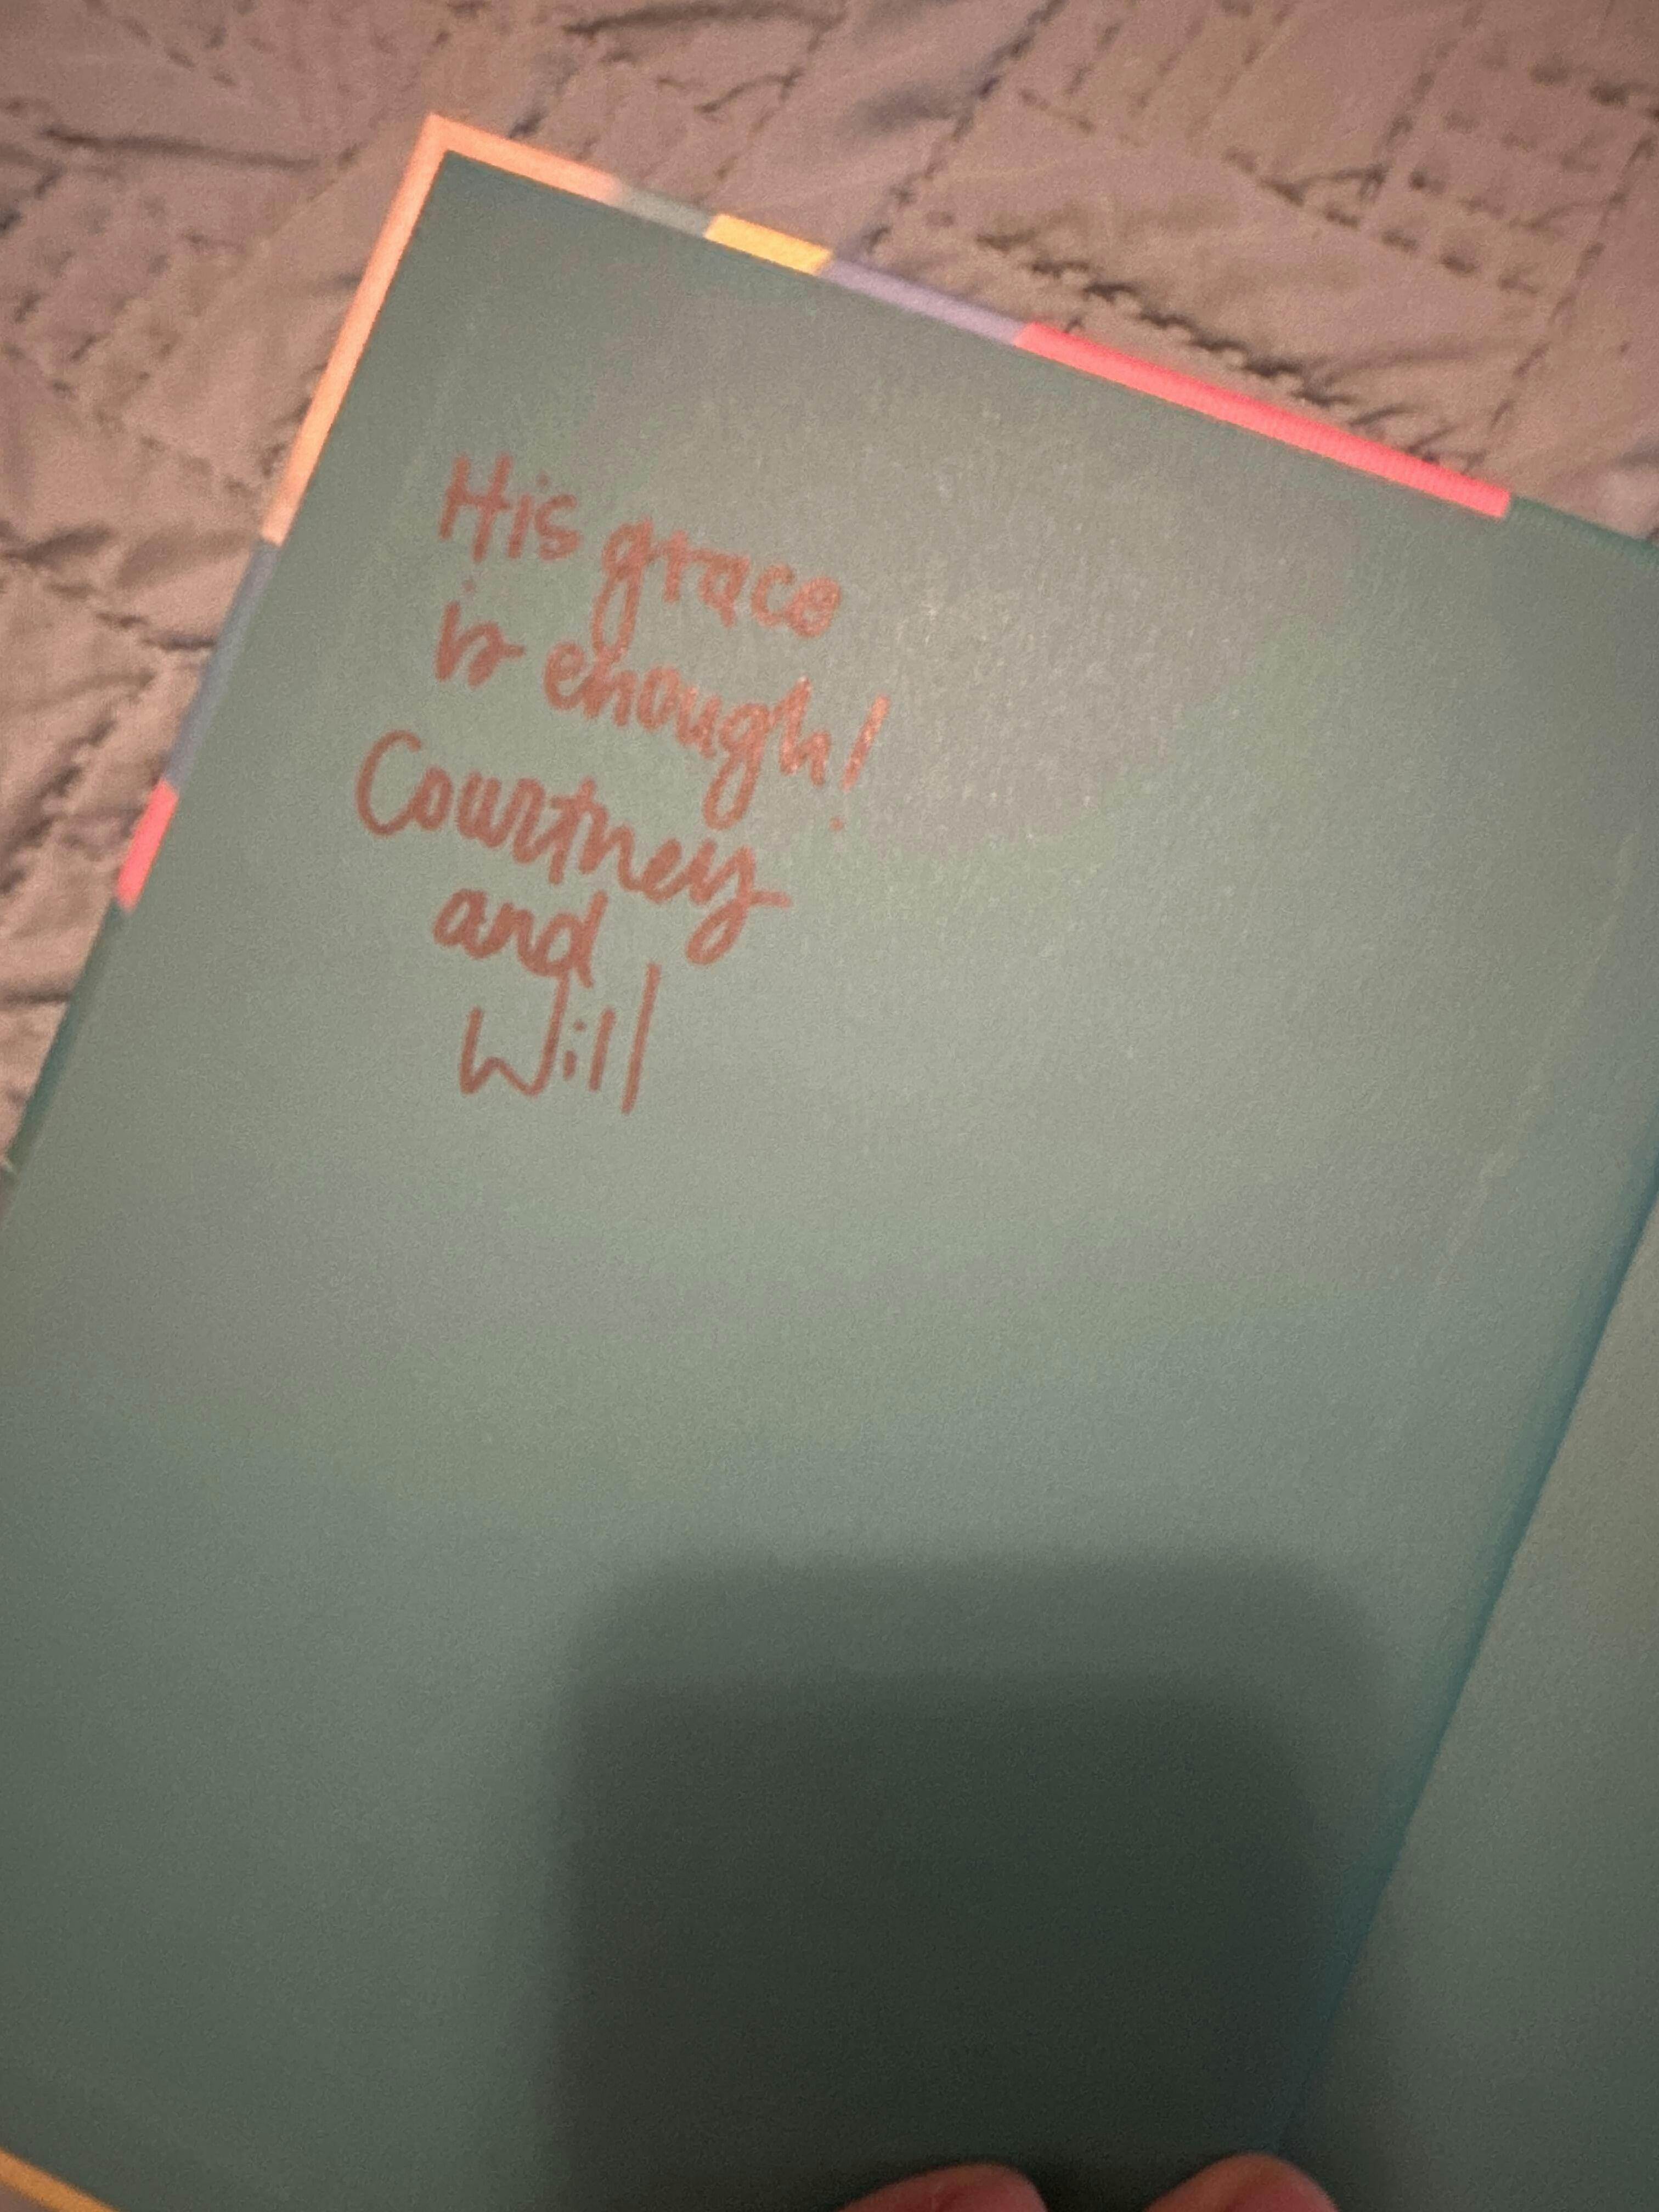 His grace
is enough!
Courtney
and
Will